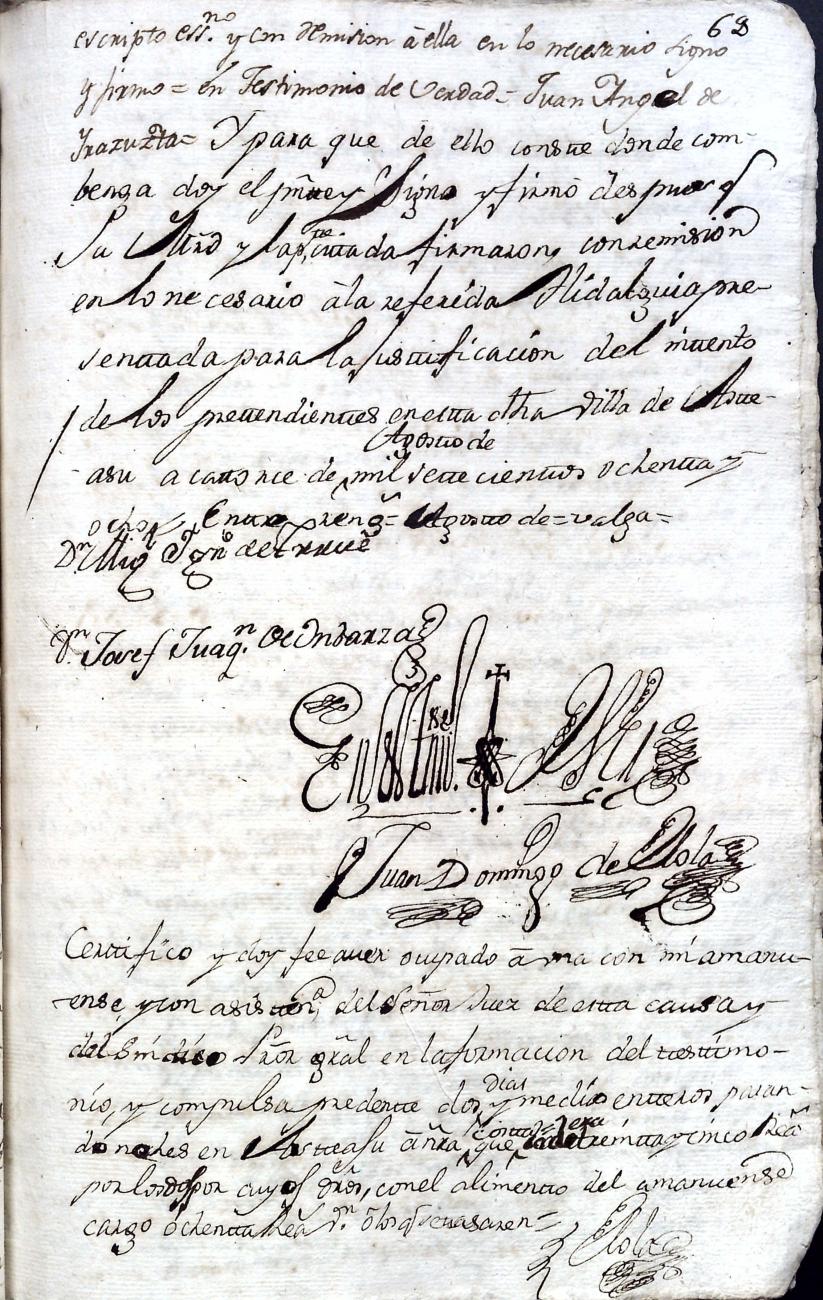 62
escripto ess.no y con remision â ella en lo necesario signo
y firmo = en Testimonio de Verdad = Juan Angel de
Yrazuzta = Y para que de ello conste donde com-
benga doy el pnte y Signo y firmo despues q
Su Mrd y la pte citada firmaron, con remision
en lo necesario â la referida Hidalguia pre-
sentada para la justificacion del intento
de los pretendientes en esta dha villa de Aste-
asu a catorce de Agosto de mil setecientos ochenta y
ocho Entre rreng.s = Agosto de = valga =
Dn Mig. Ygn.o de
Dn Josef Juaq.n de Undarza
En testim.o de Verd
Juan Domingo de Elola
Certifico y doy fee auer ocupado â una con mi amanu-
ense, y con asisten.a del Señor Juez de esta causa y
del Sindico Pror gral en la formacion del testimo-
nio, y compulsa predente dos dias y medio enteros paran-
donos en Asteasu
por los dos por cuyos dros, con el alimento del amanuense
cargo ochenta Rea.s v.n
Elola